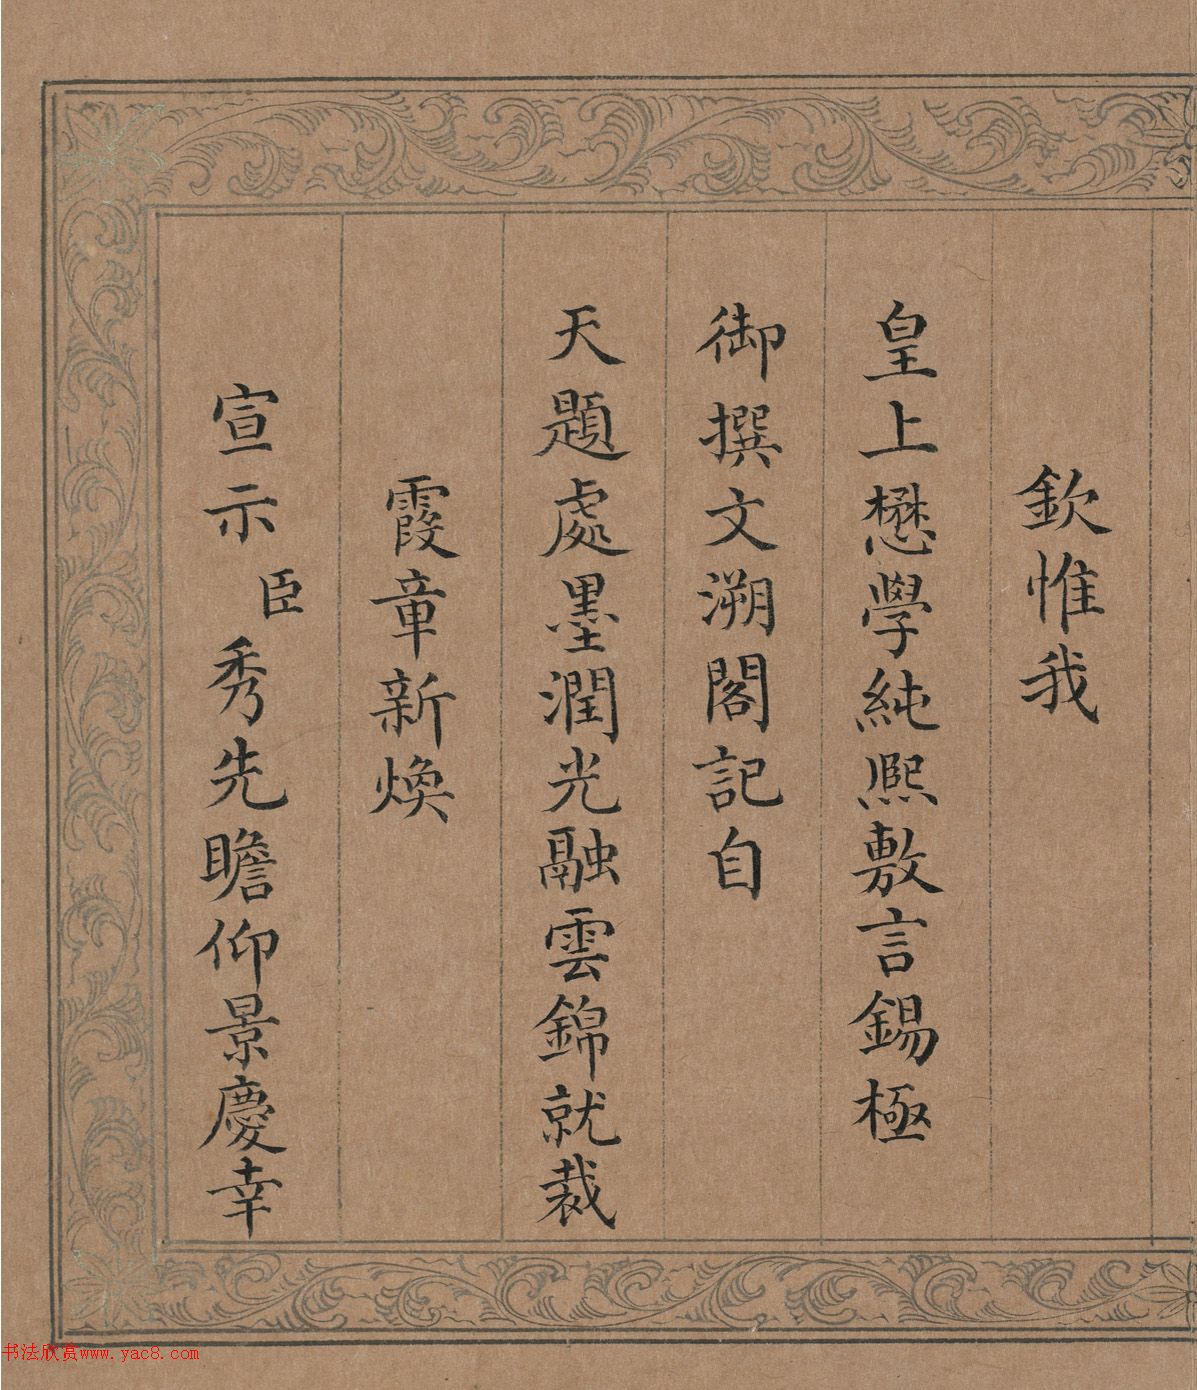 欽惟我
皇上懋學純熙敷言錫極
御撰文溯閣記自
天題處墨潤光融雲錦就裁
霞章新煥
宣示臣秀先瞻仰景慶幸
书法欣赏www.yac8.com